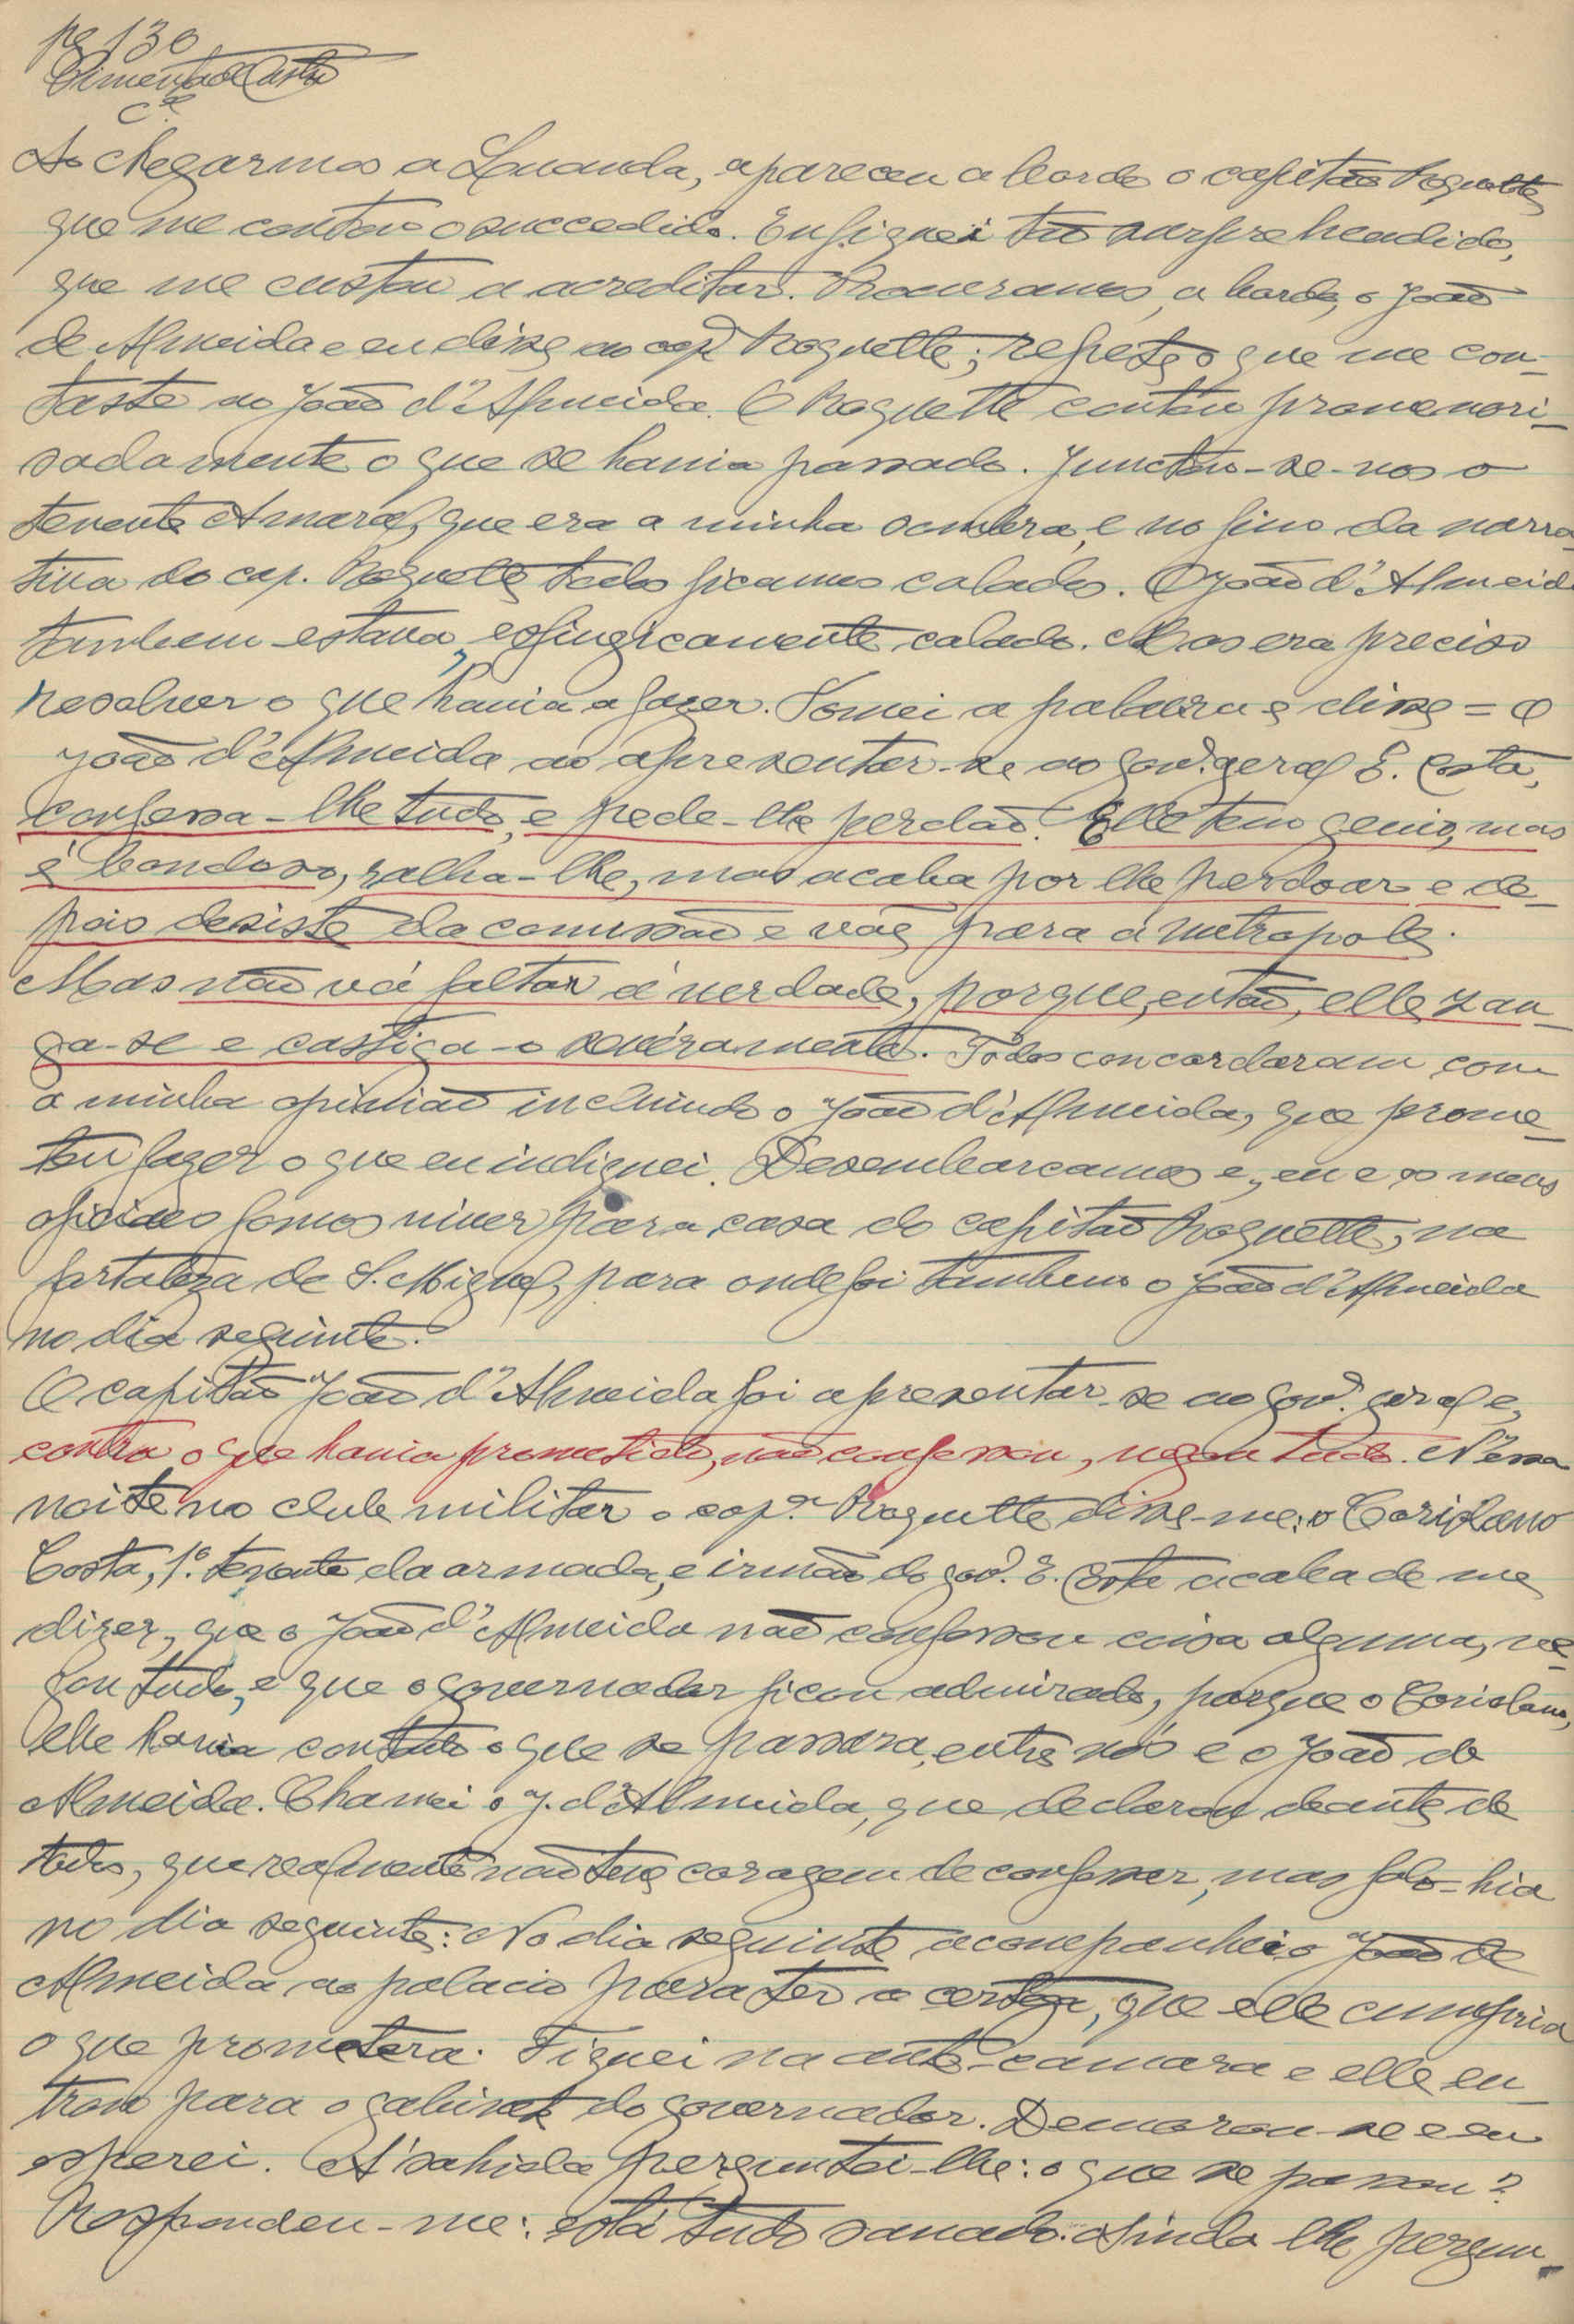 pg 130
Pimenta de Castro
C.el
Ao chegarmos a Loanda, apareceu a bordo o capitão Roquette
que me contou o succedido. Eu fiquei tão surprehendido,
que me custou a acreditar. Procuramos, a bordo, o João
de Almeida e eu disse ao cap. Roquette; repete o que me con-
taste ao João d'Almeida. O Roquette contou promenori-
sadamente o que se havia passado. Junctou-se-nos o
tenente Amaral, que era a minha sombra, e no fim da narra
tiva do cap. Roquette todos ficamos calados. O João d'Almeida
tambem estava, esfingicamente calado. Mas era preciso
resolver o que havia a fazer. Tomei a palavra e disse = O
João d'Almeida ao apresentar-se ao gov. geral E. Costa,
confessa-lhe tudo, e pede-lhe perdão. Elle tem genio, mas
é bondoso, ralha-lhe, mas acaba por lhe perdoar e de-
pois desiste da comissão e vae para a metropole.
Mas não vá faltar á verdade, porque, então, elle zan-
ga-se e castiga-o sevéramente. Todos concordaram com
a minha opinião incluindo o João d'Almeida, que prome-
teu fazer o que eu indiquei. Desembarcamos e, eu e os meus
oficiaes fomos viver para casa do capitão Roquette, na
fortaleza de S. Miguel, para onde foi tambem o João d'Almeida
no dia seguinte.
O capitão João d'Almeida foi apresentar-se ao gov. geral e,
contra o que havia prometido, não confessou, negou tudo. N'essa
noite no club militar o cap. Roquette disse-me: o Coriolano
Costa, 1.º tenente da armada, e irmão do gov. E. Costa acaba de me
dizer, que o João d'Almeida não confessou coisa alguma, ne-
gou tudo, e que o governador ficou admirado, porque o Coriolano,
lhe havia contado o que se passara, entre nós e o João de
Almeida. Chamei o J. d'Almeida, que declarou deante de
todos, que realmente não teve coragem de confessar, mas falo-hia
no dia seguinte: No dia seguinte acompanhei o João de
Almeida ao palacio para ter a certeza, que elle cumpria
o que prometera. Fiquei na ante-camara e elle en-
trou para o gabinete do governador. Demorou-se e eu
esperei. Á sahida perguntei-lhe: o que se passou?
Respondeu-me: está tudo sanado. Ainda lhe pergun-